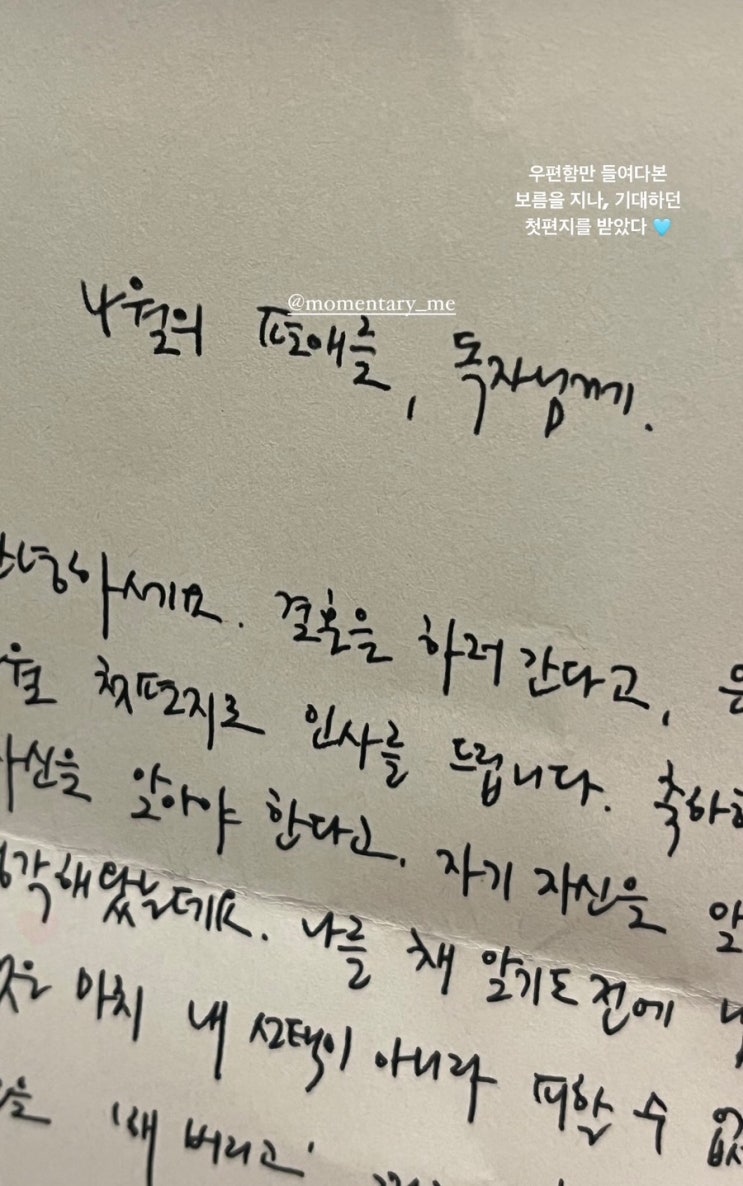 우편함만 들여다본
보름을 지나, 기대하던
첫편지를 받았다 🩵
@momentary_me
4월의 편애를, 독자님께.
안녕하세요. 결혼을 하러 간다고,
월 첫편지로 인사를 드립니다.
자신을 알아야 한다고. 자기 자신을
나를 채 알기도 전에
마치 내 선택이 아니라 피할 수
버리고'